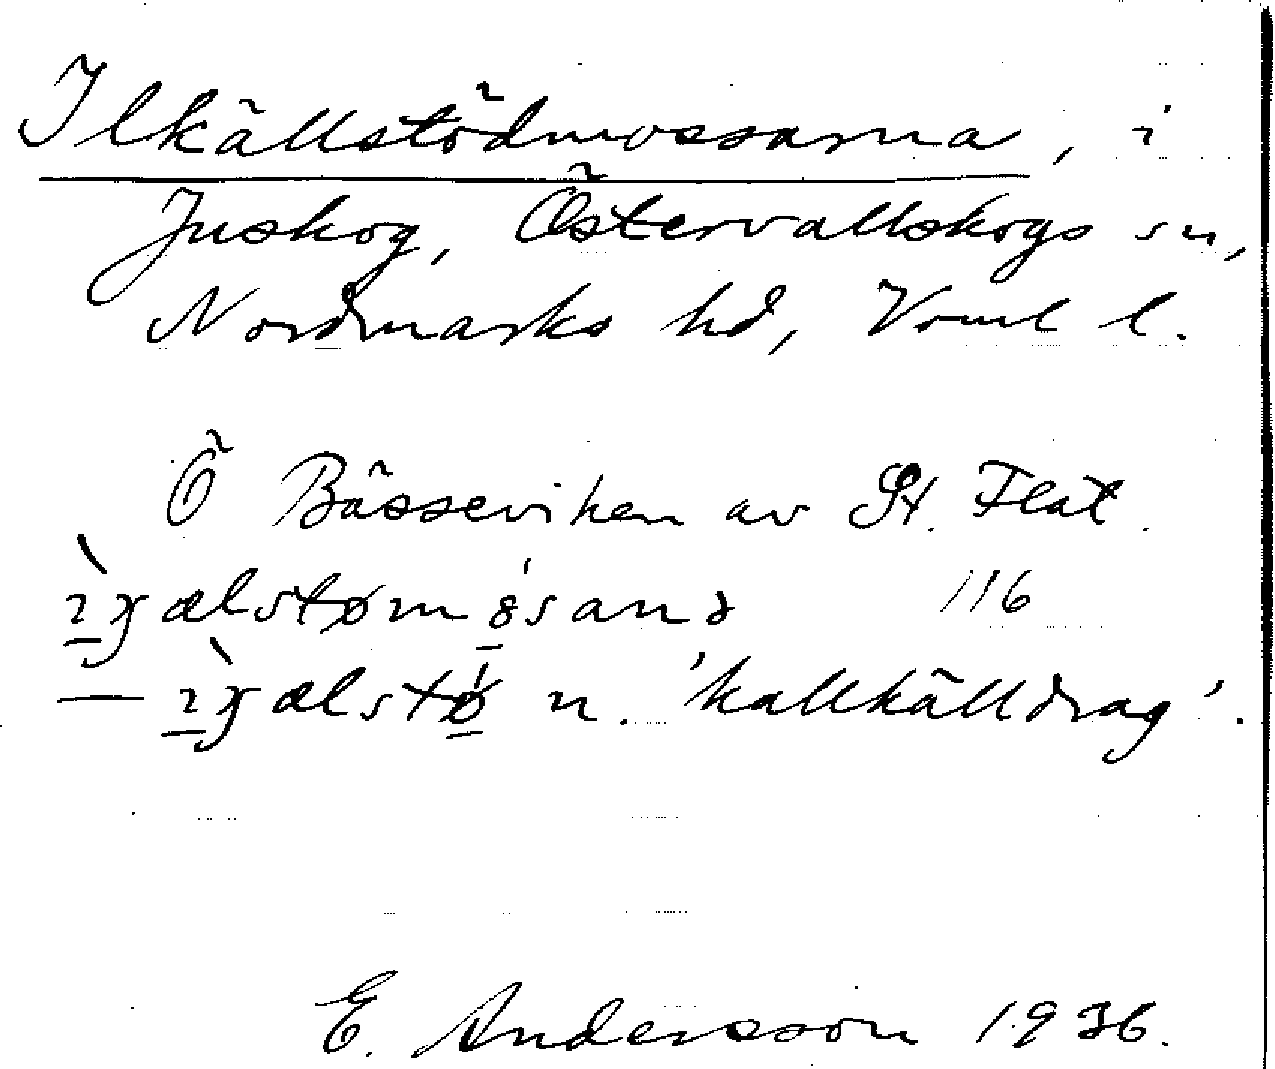 Ilkällstödmossarna, i
Juskog, Östervallskogs sn,
Nordmarks hd, Värml l.
Ö Bässeviken av St. Flat. 
116
— n. 'kallkälldrag'.
E. Andersson 1936.